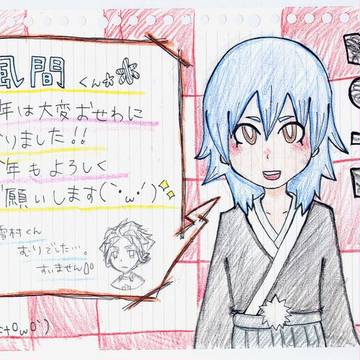 風間くん
年は大変おせわに
りました!!
年もよろしく
願いします(`･ω･´)
雪村くん
むりでした…。
すいません